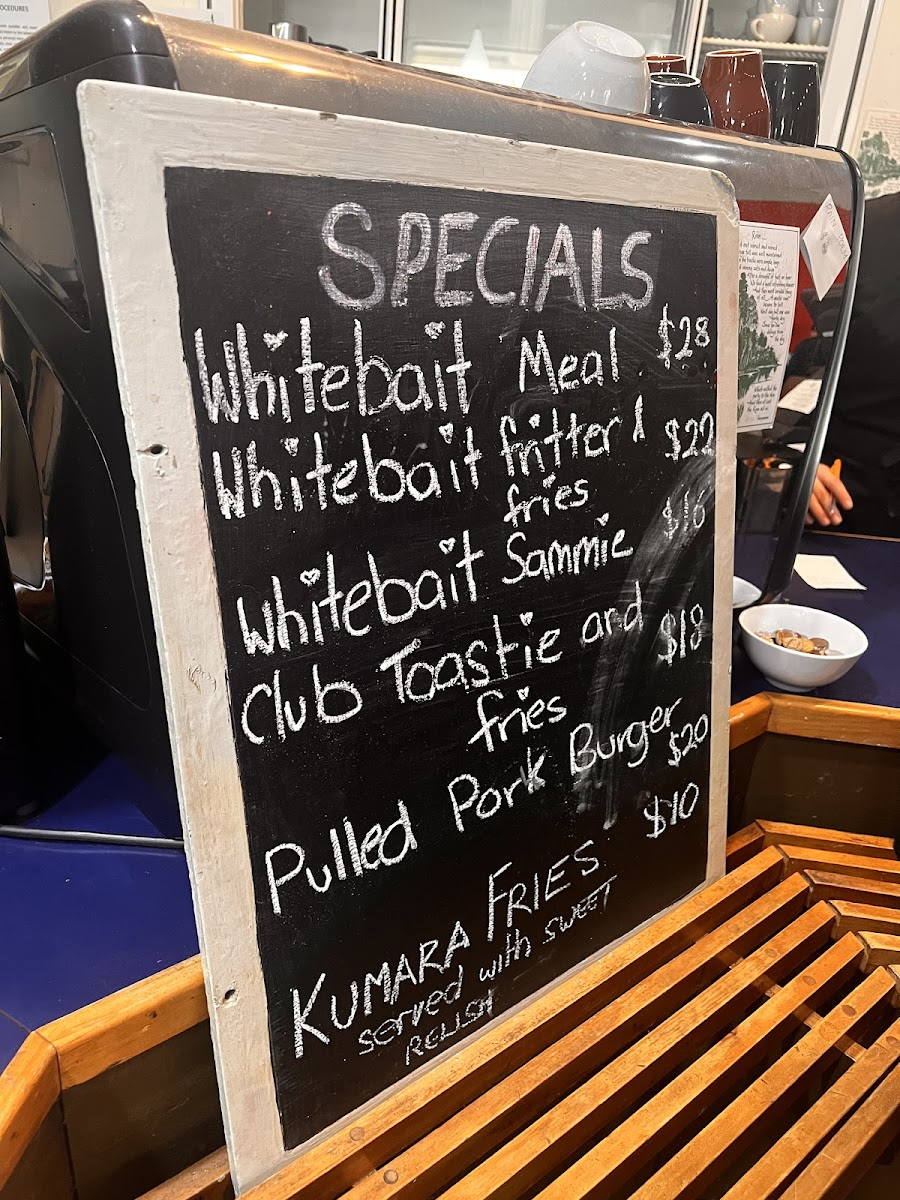 SPECIALS
Whitebait Meal $28
Whitebait fritter & $22
fries
Whitebait Sammie $16
Club Toastie and $18
fries
Pulled Pork Burger $20
KUMARA FRIES $10
served with SWEET
RELISH